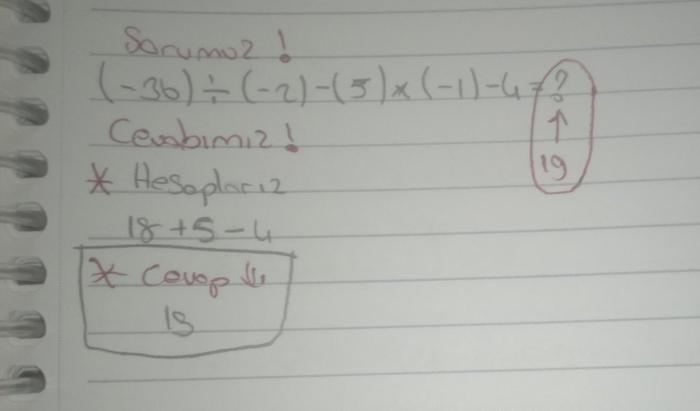 Sorumuz!
(-36) ÷ (-2) - (5) × (-1) - 4 = ?
↑
19
Cevabımız!
* Hesaplarız
18 + 5 - 4
* Cevap ↓
19